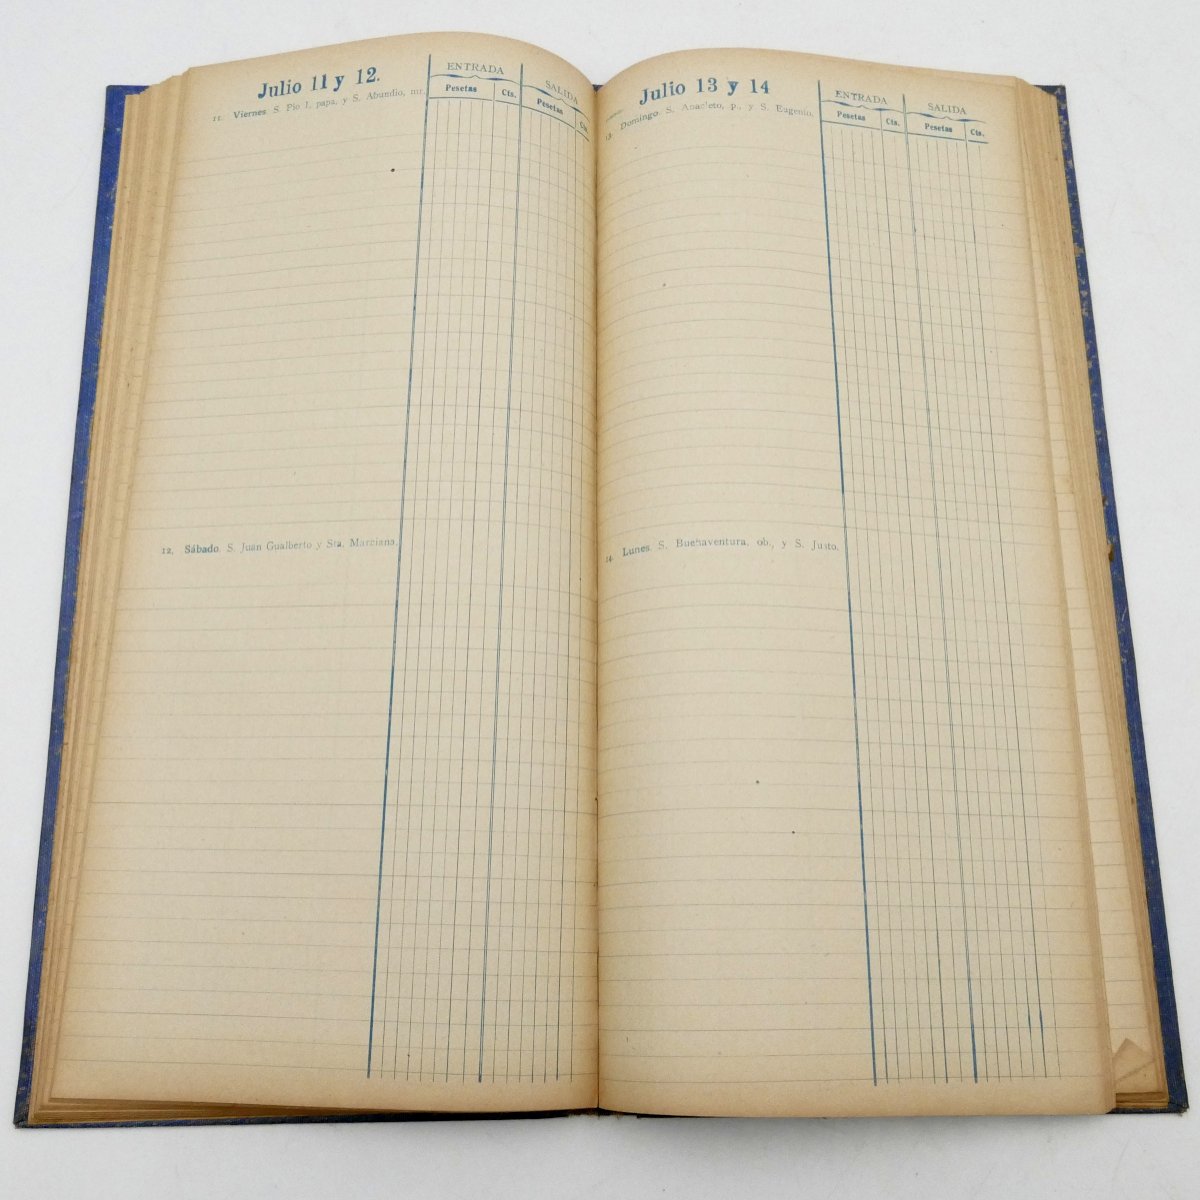 Julio 11 y 12.
11. Viernes. S. Pío I, papa, y S. Abundio, mr.
ENTRADA
SALIDA
Pesetas Cts.
Pesetas Cts.
12. Sábado. S. Juan Gualberto y Sta. Marciana.
Julio 13 y 14
13. Domingo. S. Anacleto, p., y S. Eugenio.
ENTRADA
SALIDA
Pesetas Cts.
Pesetas Cts.
14. Lunes. S. Buenaventura, ob., y S. Justo.